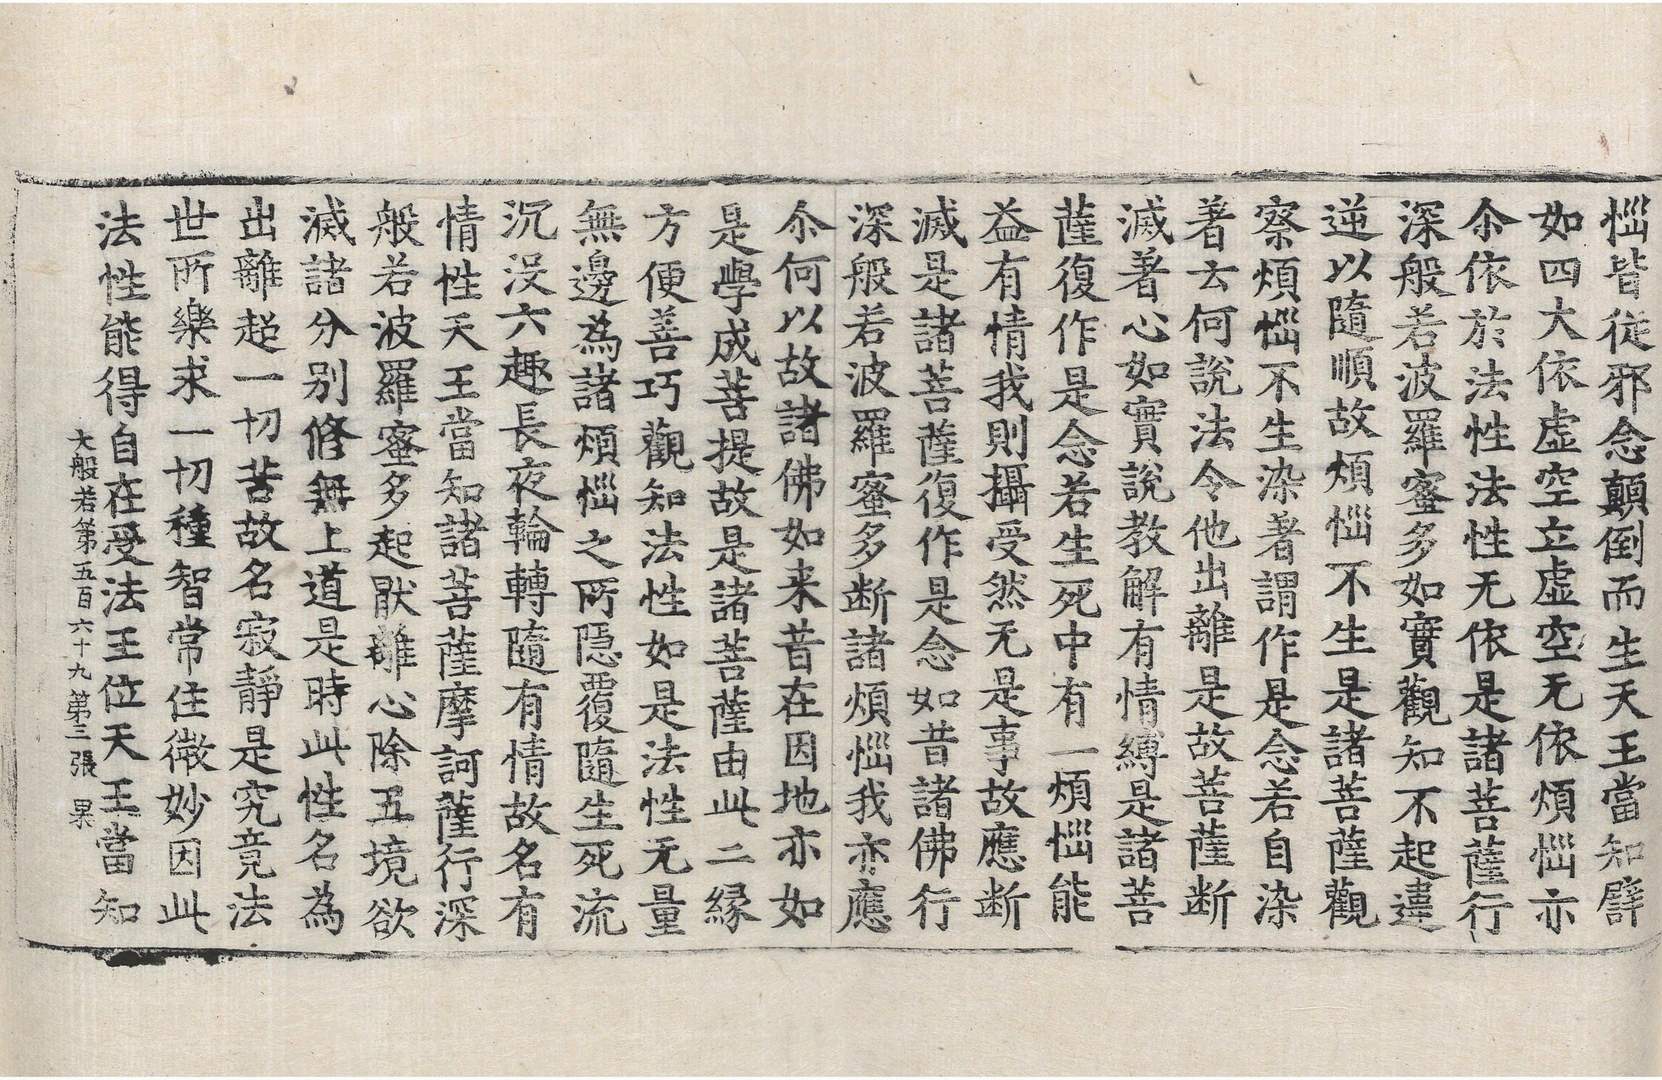 惱皆從邪念顛倒而生天王當知譬
如四大依虛空立虛空无依煩惱亦
尒依於法性法性无依是諸菩薩行
深般若波羅蜜多如實觀知不起違
逆以隨順故煩惱不生是諸菩薩觀
察煩惱不生染著謂作是念若自染
著云何說法令他出離是故菩薩断
滅著心如實說教解有情縛是諸菩
薩復作是念若生死中有一煩惱能
益有情我則攝受然无是事故應断
滅是諸菩薩復作是念如昔諸佛行
深般若波羅蜜多断諸煩惱我亦應
尒何以故諸佛如来昔在因地亦如
是學成菩提故是諸菩薩由此二緣
方便善巧觀知法性如是法性无量
無邊為諸煩惱之所隱覆隨生死流
沉没六趣長夜輪轉隨有情故名有
情性天王當知諸菩薩摩訶薩行深
般若波羅蜜多起猒離心除五境欲
滅諸分別修無上道是時此性名為
出離超一切苦故名寂靜是究竟法
世所樂求一切種智常住微妙因此
法性能得自在受法王位天王當知
大般若第五百六十九 第三張 果